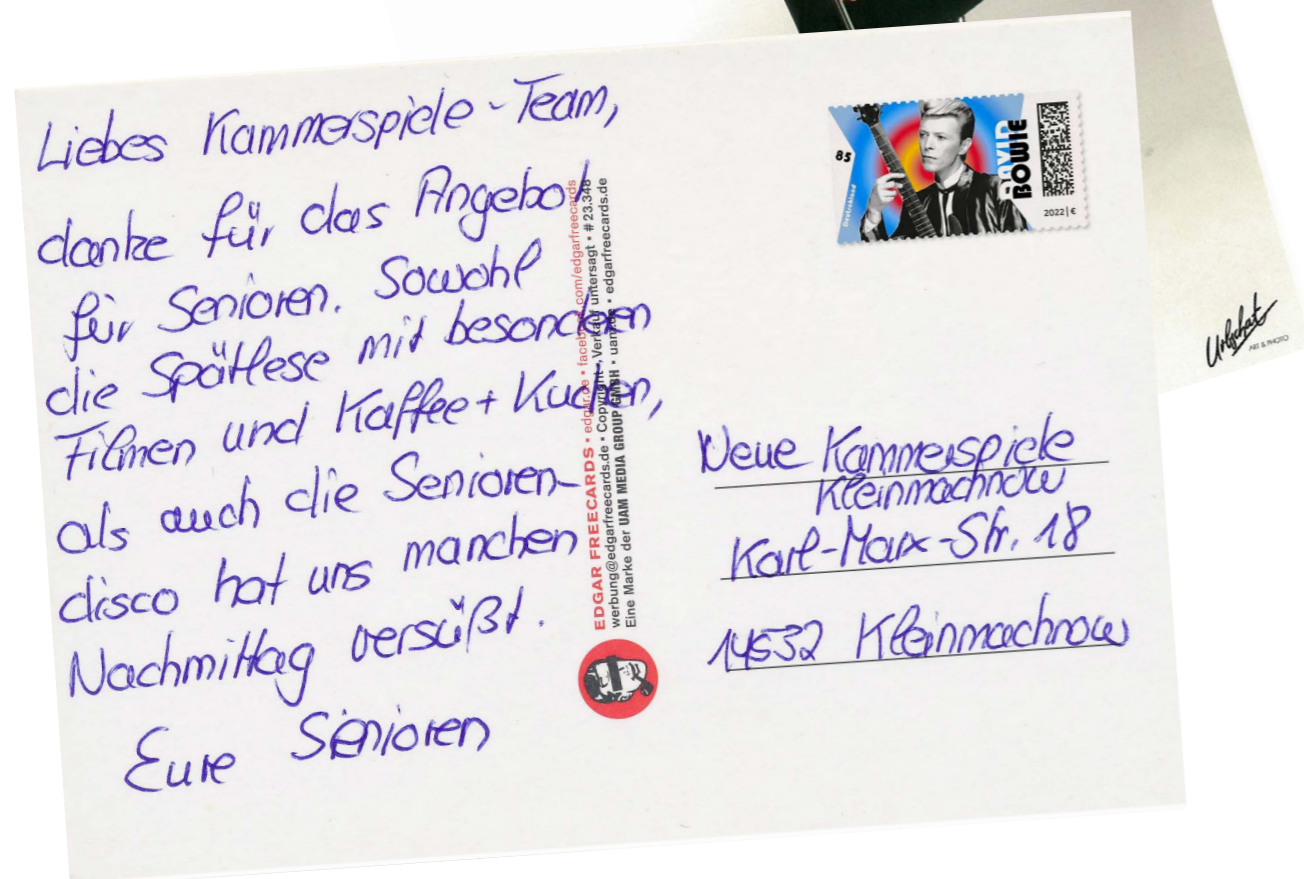 Liebes Kammerspiele-Team,
danke für das Angebot
für Senioren. Sowohl
die Spätlese mit besonderen
Filmen und Kaffee + Kuchen,
als auch die Senioren-
disco hat uns manchen
Nachmittag versüßt.
Eure Senioren
EDGAR FREECARDS • edgar.de • facebook.com/edgarfreecards
werbung@edgarfreecards.de • Copyright, Verkauf untersagt • #23.348
Eine Marke der UAM MEDIA GROUP GMBH • uam.de • edgarfreecards.de
85
Deutschland
DAVID
BOWIE
2022 | €
Neue Kammerspiele
Kleinmachnow
Karl-Marx-Str. 18
14532 Kleinmachnow
ART & PHOTO